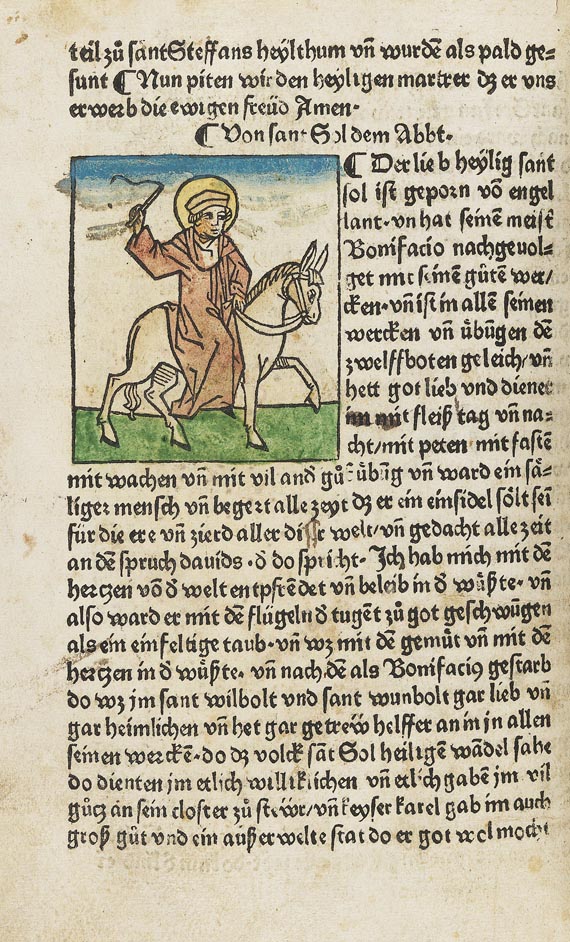 teil zů sant Steffans heylthum vñ wurdē als pald ge=
sunt ¶ Nun piten wir den heyligen martrer dz er vns
erwerb die ewigen freüd Amen·
¶ Von sant Sol dem Abbt·
¶ Der lieb heylig sant
sol ist geporn võ engel
lant·vn hat seinē meist
Bonifacio nachgeuol=
get mit seinē gůtē wer/
cken·vñ ist in allē seinen
wercken vñ ůbügen dē
zwelffboten geleich/vñ
hett got lieb vnd dienet
im mit fleiß tag vñ na=
cht/mit peten mit fastē
mit wachen vñ mit vil and gůt übūg vñ ward ein så=
liger mensch vñ begert alle zeyt dz er ein einsidel sőlt sei
für die ere vñ zierd aller diser welt/vñ gedacht alle zeit
an dē spruch dauids·d do spricht·Ich hab mich mit dē
hertzen võ d welt entpfrēdet vñ beleib in d wůßte·vñ
also ward er mit dē flügeln d tugēt zů got geschwūgen
als ein einfeltige taub·vñ wz mit dē gemůt vñ mit dē
hertzen in d wůßte·vñ nach dē als Bonifaciꝯ gestarb
do wz jm sant wilbolt vnd sant wunbolt gar lieb vñ
gar heimlichen vñ het gar getrew helffer an in jn allen
seinen werckē·do dz volck sāt Sol heiligē wādel sahe
do dienten jm etlich williklichen vñ etlich gabē jm vil
gůtz an sein closter zů stewr/vñ keyser karel gab im auch
groß gůt vnd ein außerwelte stat do er got wol mocht